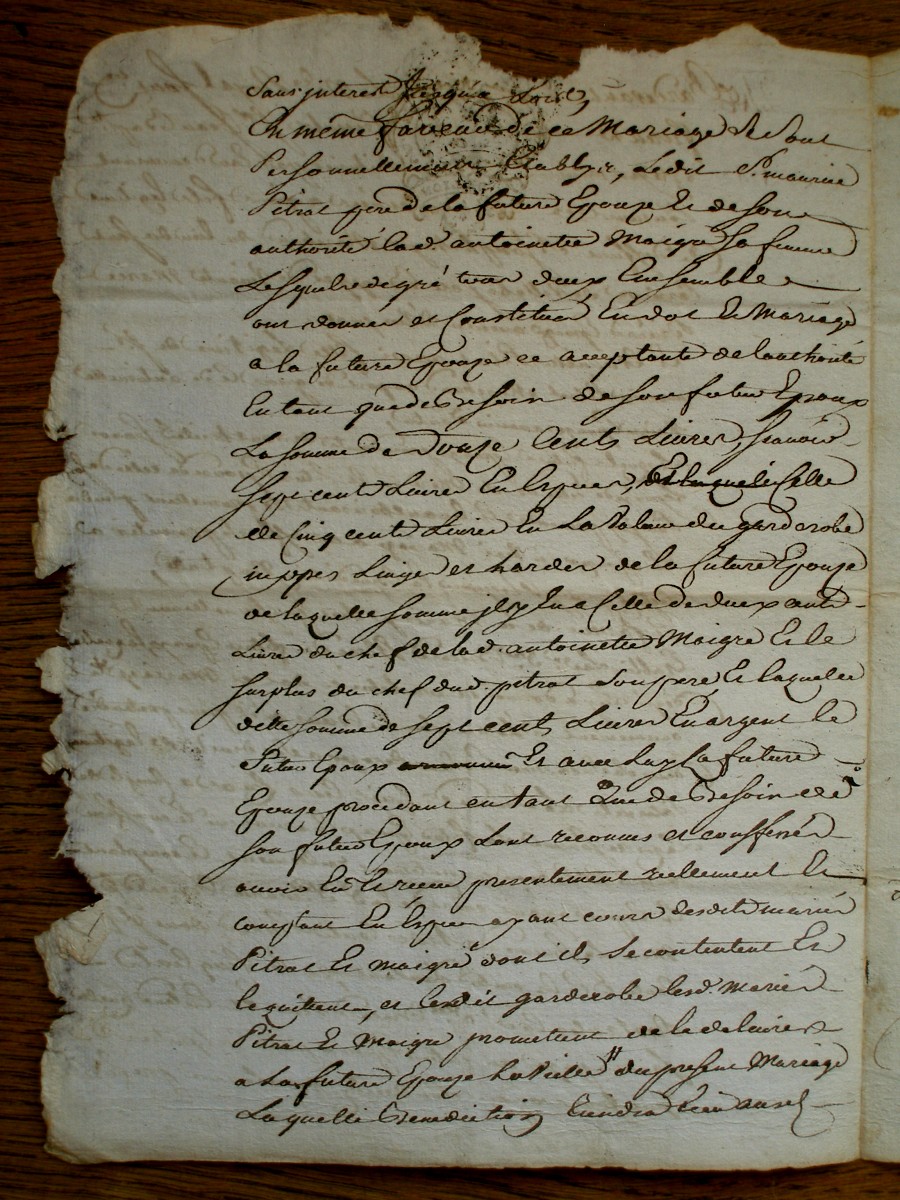 Sans interest jusqu'a lors,
En meme faveur de ce Mariage se sont
Personnellement Etablys, Ledit Sr. maurice
Pitrat pere de la future Epouze Et de son
authorité lad. antoinette Maigre sa femme
Lesquels de gré tous deux Ensemble
ont donner et Constitué En dot Et Mariage
a la future Epouze ce acceptante de lauthorité
En tant que de Besoin de son futur Epoux
La somme de Douze Cents Livres, scavoir
sept cents Livres En Especes, Et celle
de Cinq cents Livres En La Valeur du garderobe
nippes Linges et hardes de la future Epouze
de laquelle somme jl y En a Celle de deux cents
Livres du chef de lad. antoinette Maigre Et le
surplus du chef dud. pitrat son pere Et laquelle
ditte somme de sept cents Livres En argent le
futur Epoux Et avec Luy La future
Epouze procedant en tant Que de Besoin de
son futur Epoux Lont reconnus et confessés
avoir Eu Et receu presentement reellement Et
comptant En Espece ayant cours desdits mariés
Pitrat Et maigre dont ils se contentent Et
les quittent, et ledit garderobe lesd. Mariés
Pitrat Et Maigre promettent de le delivrer
a La future Epouze La Veille # du present Mariage
Laquelle Benediction